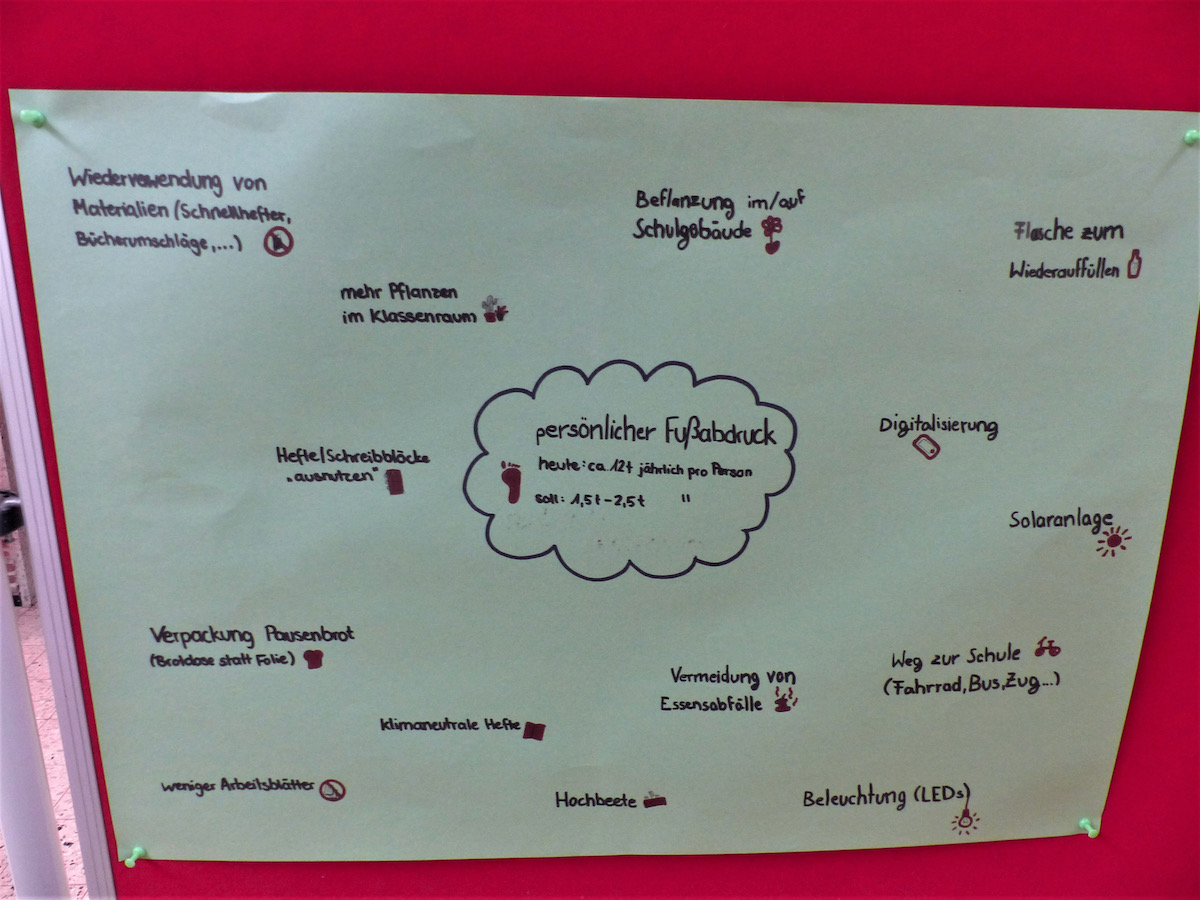 Wiederverwendung von
Materialien (Schnellhefter,
Bücherumschläge,...)
Beflanzung im/auf
Schulgebäude
Flasche zum
Wiederauffüllen
mehr Pflanzen
im Klassenraum
persönlicher Fußabdruck
heute: ca. 12t jährlich pro Person
soll: 1,5t-2,5t "
Hefte/Schreibblöcke
„ausnutzen"
Digitalisierung
Solaranlage
Verpackung Pausenbrot
(Brotdose statt Folie)
Vermeidung von
Essensabfälle
Weg zur Schule
(Fahrrad, Bus, Zug...)
Klimaneutrale Hefte
weniger Arbeitsblätter
Hochbeete
Beleuchtung (LEDs)